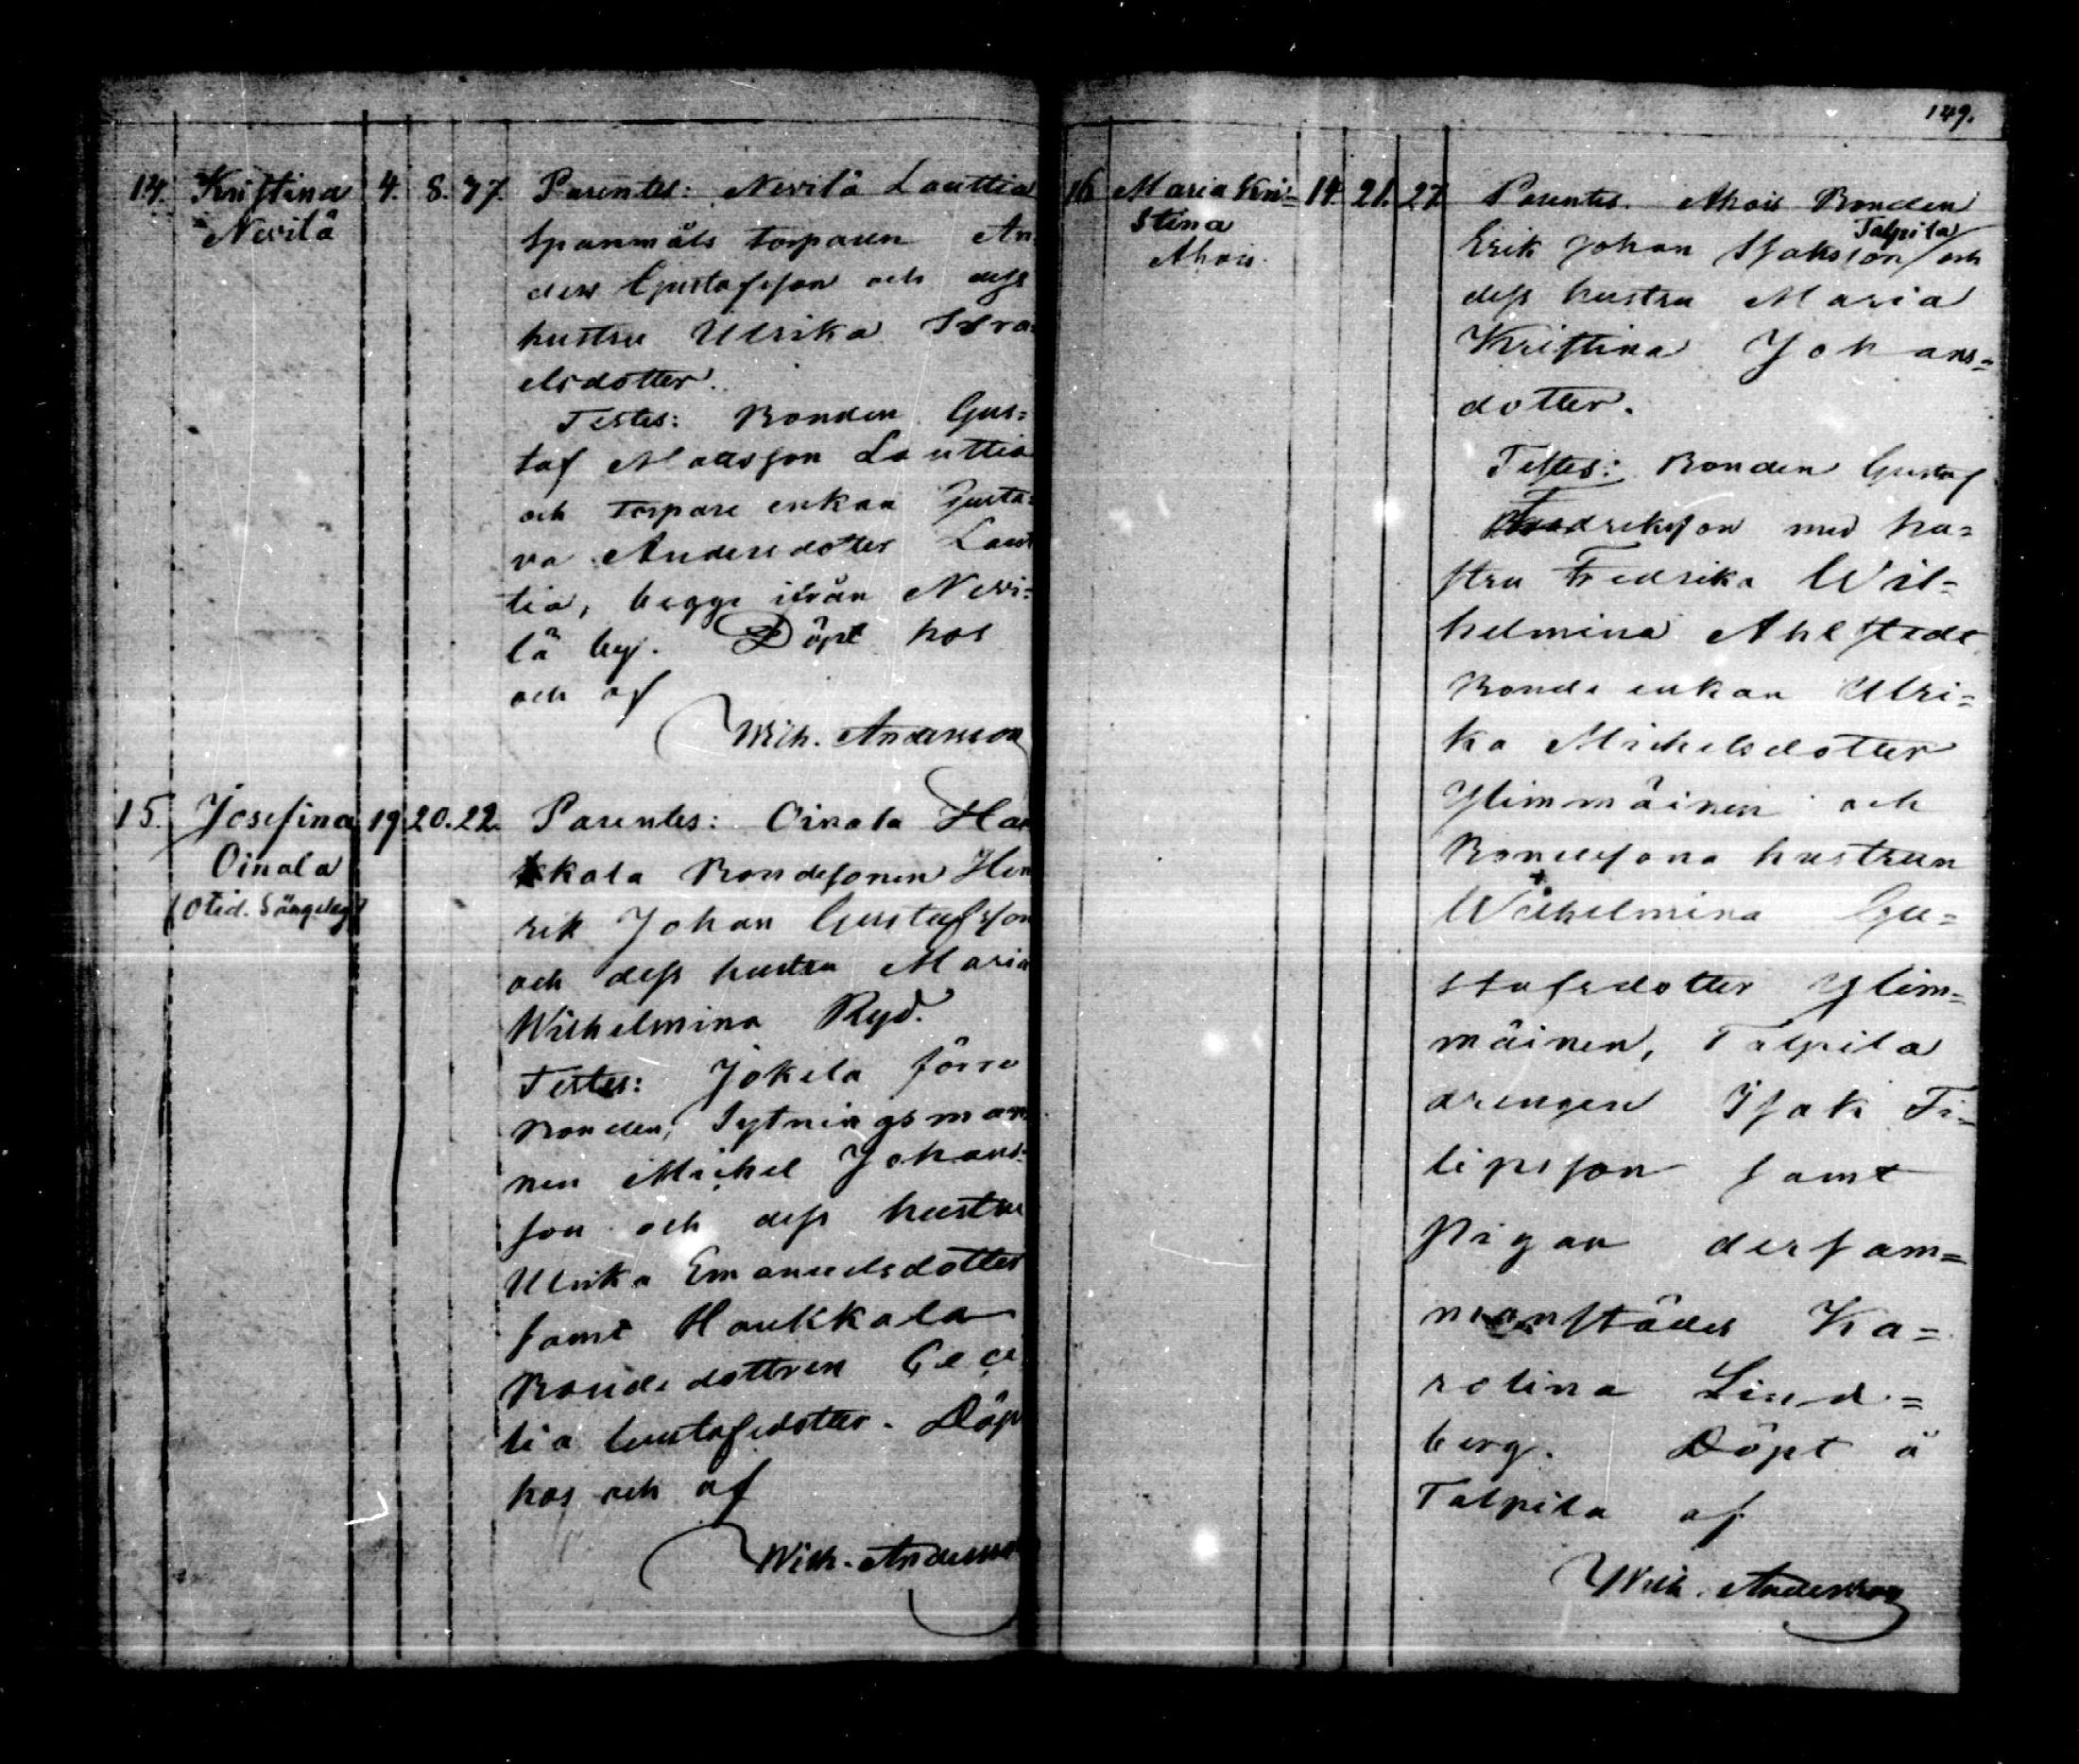 149.
14. Kristina 4. 8. 37. Parentes: Nevilä Lauttia
Nevilä
Spanmåls torparen An
ders Gustafsson och dess
hustru Ulrika Isra-
elsdotter.
Testes: Bonden Gus=
taf Matsson Lauttia
och torpare enkan Gusta=
va Andersdotter Laut
tia, begge ifrån Nevi=
lä by. Döpt hos
och af
Wilh. Andersson
15. Josefina 19 20. 22. Parentes: Oinala Hau
Oinala
(Otid. Sängelag)
kkala Bondesonen Hen
rik Johan Gustafsson
och dess hustru Maria
Wilhelmina Ryd.
Testes: Jokela förre
Bonden, Sytningsman
nen Michel Johans-
son och dess hustru
Ulrika Emanuelsdotter
samt Haukkala
Bondedottren Ceci
lia Gustafsdotter. Döpt
hos och af
Wilh. Andersson
16 Maria Kri= 14. 21. 27. Parentes. Ahois Bonden
stina
Ahois.
Talpila
Erik Johan Isaksson / och
dess hustru Maria
Kristina Johans=
dotter.
Testes: Bonden Gustaf
Fredriksson med hu=
stru Fredrika Wil=
helmina Ahlstedt
Bonde enkan Ulri=
ka Michelsdotter
Ylimmäinen och
Bondesons hustrun
Wilhelmina Gu=
stafsdotter Ylim=
mäinen, Talpila
drengen Isak Fi=
lipsson samt
Pigan dersam=
manstädes Ka=
rolina Lind=
berg. Döpt å
Talpila af
Wilh. Andersson